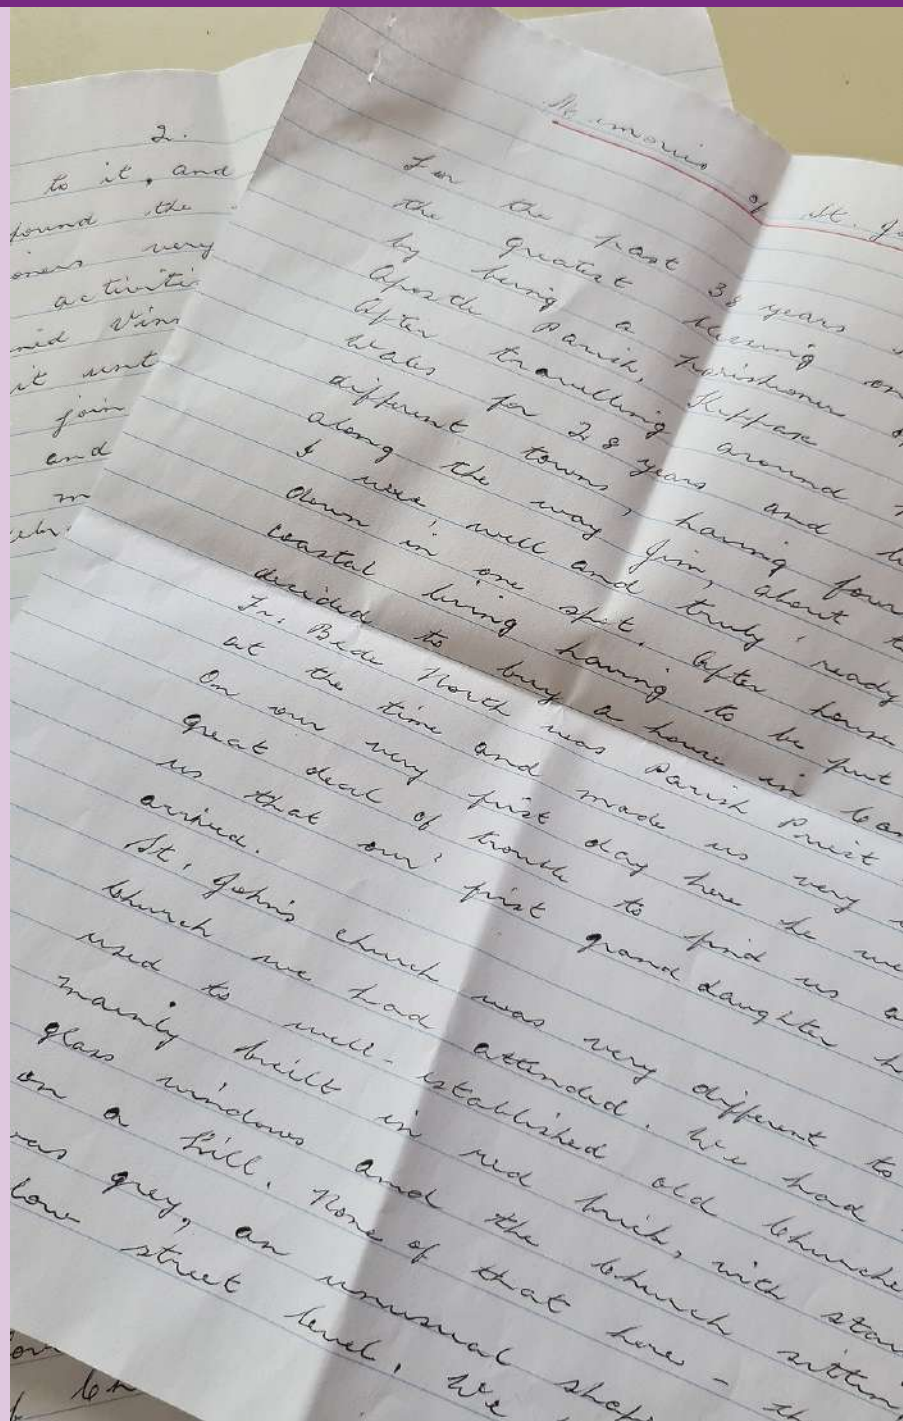 2.
to it, and
found the
very
activitie
it unt
join
and
m
Memories of St. Jo
For the past 38 years
the greatest blessing on
by being a parishioner of
Apostle Parish, Kippax
After travelling around
Wales for 28 years and
different towns, having four
along the way, Jim, about t
I were, well and truly, ready
down in one spot. After house
coastal living having to be put
decided to buy a house in Can
Fr. Bede North was Parish Priest
at the time and made us very
On our very first day here he we
great deal of trouble to find us a
us that our first granddaughter h
arrived.
St. John's church was very different to
church we had attended. We had
used to well-established old churche
mainly built in red brick, with stai
glass windows and the church sittin
on a hill. None of that here - th
was grey, an unusual shape
low street level. We